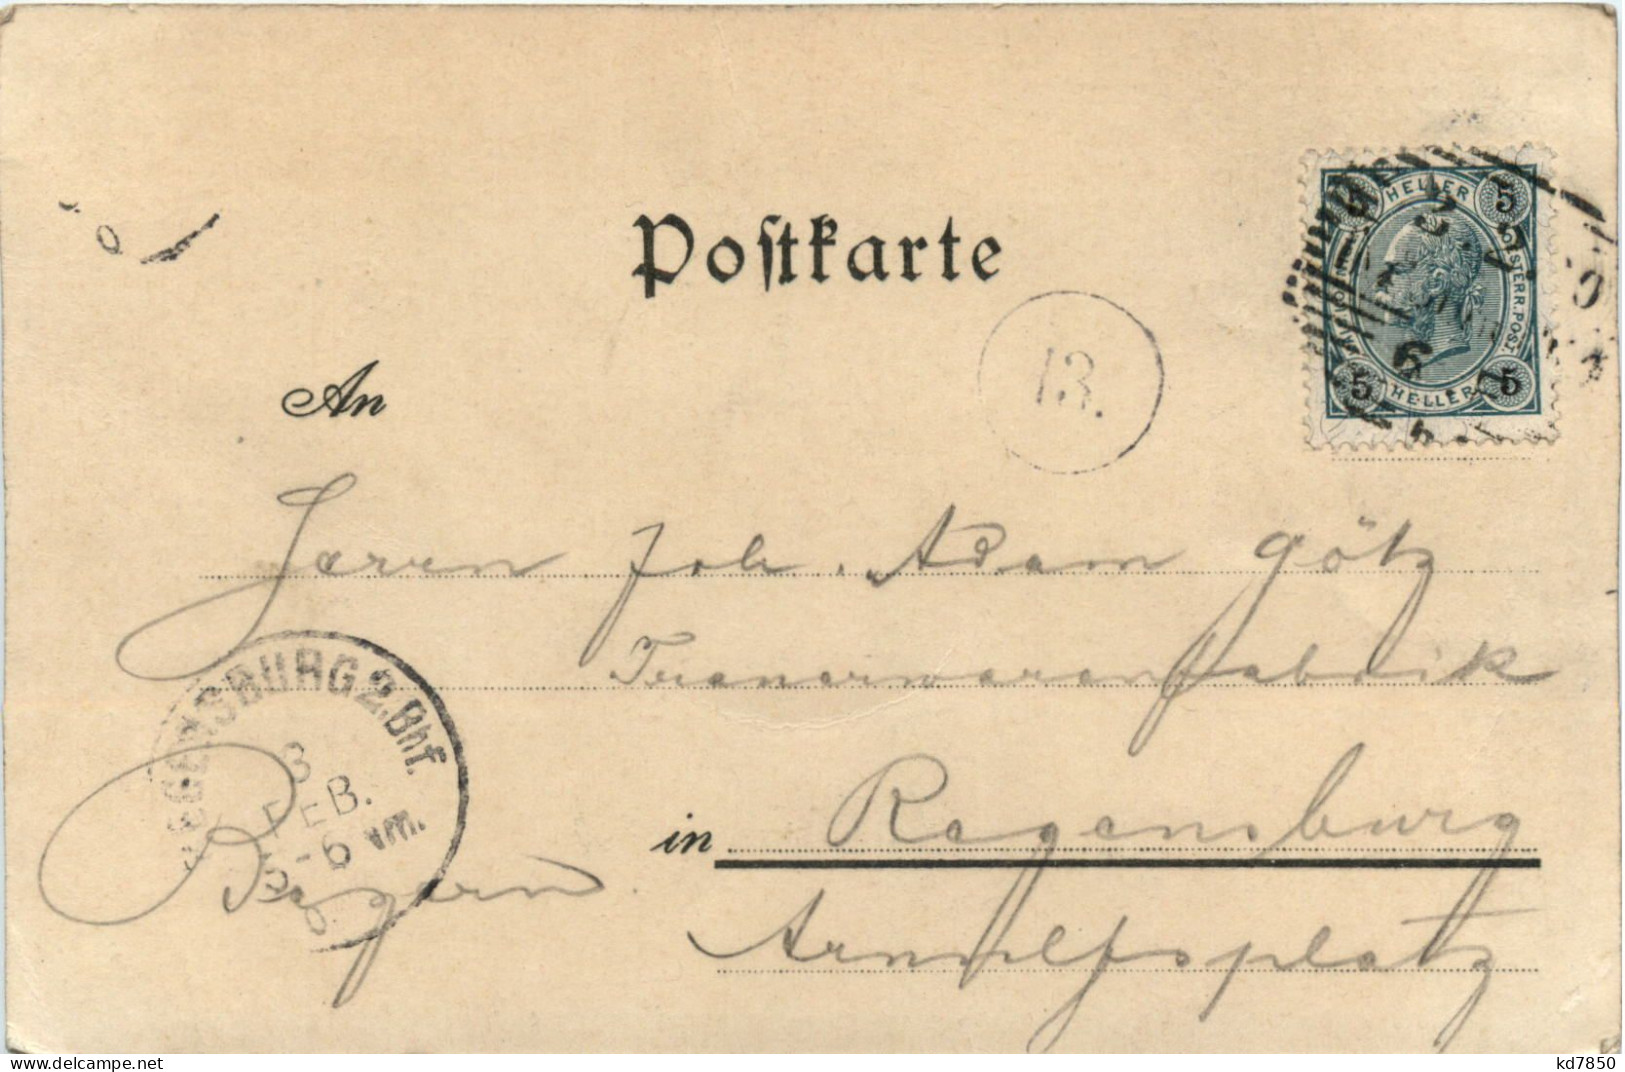 Postkarte
HELLER
5 5
ÖSTERR. POST.
5 5
HELLER
6
13.
An
Herrn Joh. Adam Götz
Trauerwarenfabrik
REGENSBURG 2. Bhf.
3
FEB.
5-6 Vm.
in Regensburg
Bayern
Arnulfsplatz
www.delcampe.net
kd7850